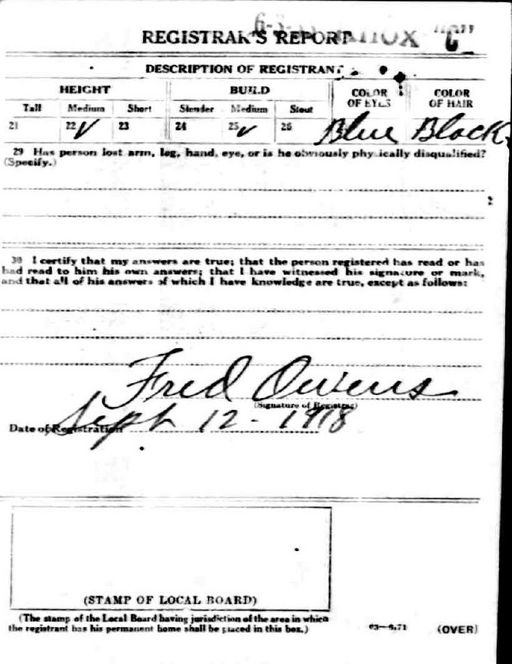 REGISTRAR'S REPORT "C"
DESCRIPTION OF REGISTRANT
HEIGHT BUILD COLOR OF EYES COLOR OF HAIR
Tall Medium Short Slender Medium Stout
21 22 ✓ 23 24 25 ✓ 26 Blue Black
29 Has person lost arm, leg, hand, eye, or is he obviously physically disqualified?
(Specify.)
2
30 I certify that my answers are true; that the person registered has read or has
had read to him his own answers; that I have witnessed his signature or mark,
and that all of his answers of which I have knowledge are true, except as follows:
Fred Owens
(Signature of Registrar)
Date of Registration Sept 12 - 1918
(STAMP OF LOCAL BOARD)
(The stamp of the Local Board having jurisdiction of the area in which
the registrant has his permanent home shall be placed in this box.)
03—6171 (OVER)